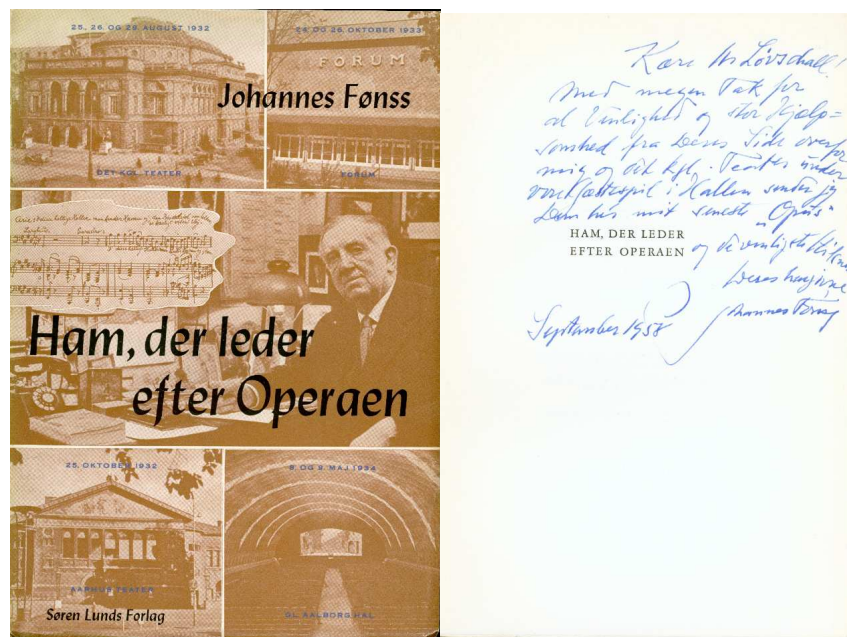 25., 26. OG 29. AUGUST 1932
24. OG 26. OKTOBER 1933
FORUM
Johannes Fønss
DET KGL. TEATER
FORUM
Ham, der leder
efter Operaen
25. OKTOBER 1932
8. OG 9. MAJ 1934
AARHUS TEATER
GL. AALBORG HAL
Søren Lunds Forlag
Kære Hr Løvschall!
Med megen Tak for
al Venlighed og stor Hjælp=
somhed fra Deres Side overfor
mig og Det kgl. Teater under
vort Gæstespil i Hallen sender jeg
Dem her mit seneste "Opus"
HAM, DER LEDER
EFTER OPERAEN
og de venligste Hilsner
Deres hengivne
Johannes Fønss
September 1958